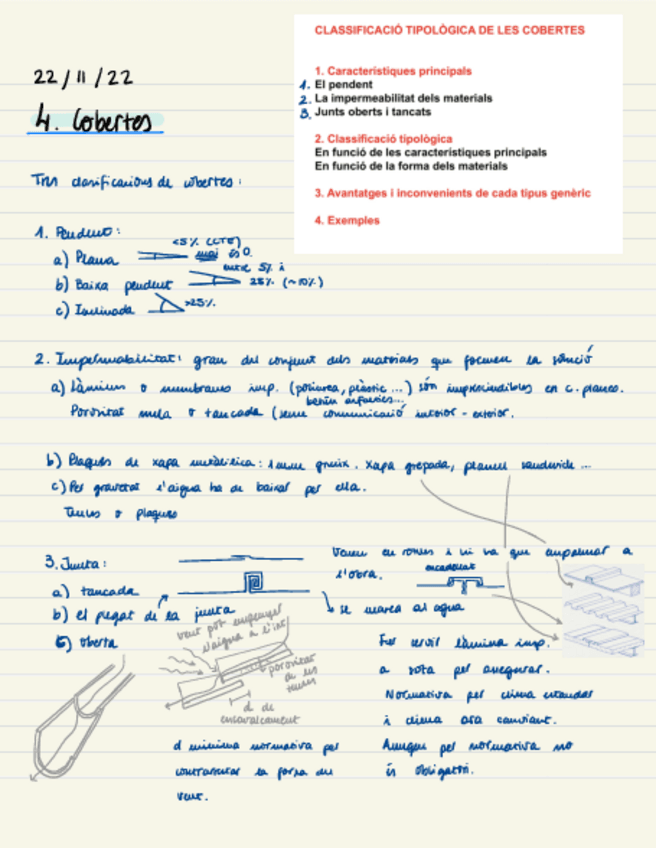 CLASSIFICACIÓ TIPOLÒGICA DE LES COBERTES
1. Característiques principals
1. El pendent
2. La impermeabilitat dels materials
3. Junts oberts i tancats
2. Classificació tipològica
En funció de les característiques principals
En funció de la forma dels materials
3. Avantatges i inconvenients de cada tipus genèric
4. Exemples
22/11/22
4. Cobertes
Tres classificacions de cobertes:
1. Pendent:
<5% (CTE)
a) Plana mai és 0.
entre 5% i
b) Baixa pendent 25% (~10%)
c) Inclinada >25%
2. Impermeabilitat: grau del conjunt dels materials que formen la
a) Làmines o membranes imp. (poliurea, plàstic ...) són imprescindibles en c. planes.
Porositat nula o tancada (sense comunicació interior - exterior.
b) Plaques de xapa metàl·lica: 1mm gruix. Xapa grepada, planxes sandwich ...
c) Per gravetat l'aigua ha de baixar per ella.
Teules o plaques
3. Junta:
a) tancada
b) el plegat de la junta
c) oberta
Venen en rotlles i hi ha que empalmar a
l'obra.
encadellat
se marea al agua
vent pot empènyer
l'aigua a l'int
porositat
en les
teules
d de
encavalcament
d mínima normativa per
contrarestar la força del
vent.
Fer servir làmina imp.
a sota per assegurar.
Normativa per clima estandar
i clima ara canviant.
Aunque per normativa no
és obligatori.